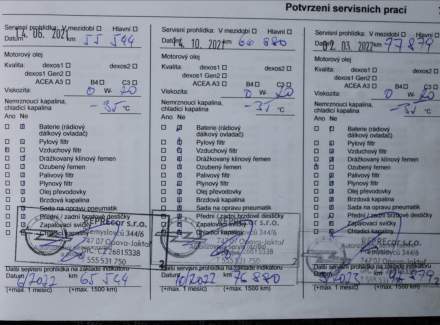 Potvrzení servisních prací
Servisní prohlídka: V mezidobí Hlavní
Datum 14. 06. 2021 km 55 544
Motorový olej
Kvalita: dexos1 dexos2
dexos1 Gen2
ACEA A3 B4 C3
Viskozita 0 W- 20
Nemrznoucí kapalina,
chladicí kapalina -35 °C
Ano Ne
Baterie (rádiový
dálkový ovladač)
Pylový filtr
Vzduchový filtr
Drážkovaný klínový řemen
Ozubený řemen
Palivový filtr
Plynový filtr
Olej převodovky
Brzdová kapalina
Sada na opravu pneumatik
Přední / zadní brzdové destičky
Zapalovací svíčky
REPRecar s.r.o.
344/6
747 07 Opava-Jaktař
26815338
555 531 750
Další servisní prohlídka na základě indikátoru
Datum 6/2022 km 65 544
(+max. 1 měsíc) (+max. 1500 km)
Servisní prohlídka: V mezidobí Hlavní
Datum 14. 10. 2021 km 66 880
Motorový olej
Kvalita: dexos1 dexos2
dexos1 Gen2
ACEA A3 B4 C3
Viskozita 0 W- 20
Nemrznoucí kapalina,
chladicí kapalina -35 °C
Ano Ne
Baterie (rádiový
dálkový ovladač)
Pylový filtr
Vzduchový filtr
Drážkovaný klínový řemen
Ozubený řemen
Palivový filtr
Plynový filtr
Olej převodovky
Brzdová kapalina
Sada na opravu pneumatik
Přední / zadní brzdové destičky
Zapalovací svíčky
Chladicí kapalina
747 07 Opava-Jaktař
555 531 750
Další servisní prohlídka na základě indikátoru
Datum 10/2022 km 76 880
(+max. 1 měsíc) (+max. 1500 km)
Servisní prohlídka: V mezidobí Hlavní
Datum 02. 03. 2022 km 77 879
Motorový olej
Kvalita: dexos1 dexos2
dexos1 Gen2
ACEA A3 B4 C3
Viskozita 0 W- 20
Nemrznoucí kapalina,
chladicí kapalina -35 °C
Ano Ne
Baterie (rádiový
dálkový ovladač)
Pylový filtr
Vzduchový filtr
Drážkovaný klínový řemen
Ozubený řemen
Palivový filtr
Plynový filtr
Olej převodovky
Brzdová kapalina
Sada na opravu pneumatik
Přední / zadní brzdové destičky
Zapalovací svíčky
Chladicí kapalina
Další servisní prohlídka na základě indikátoru
Datum km
(+max. 1 měsíc) (+max. 1500 km)